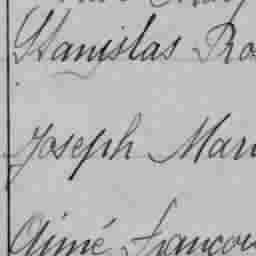 Stanislas Ro
Joseph Mari
Aimé Françoi